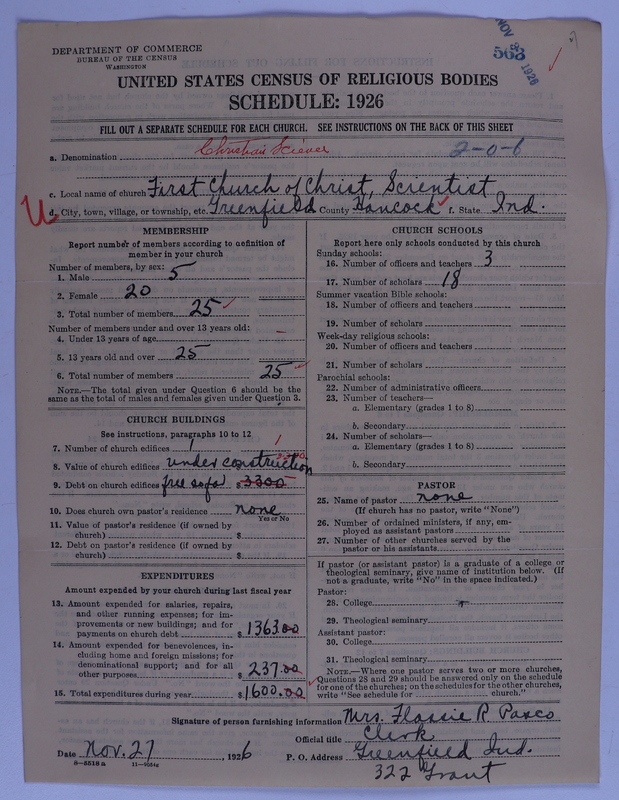 NOV 29 1926
563
DEPARTMENT OF COMMERCE
BUREAU OF THE CENSUS
WASHINGTON
UNITED STATES CENSUS OF RELIGIOUS BODIES
SCHEDULE: 1926
FILL OUT A SEPARATE SCHEDULE FOR EACH CHURCH. SEE INSTRUCTIONS ON THE BACK OF THIS SHEET
a. Denomination Christian Science 2-0-6
c. Local name of church First Church of Christ, Scientist
d. City, town, village, or township, etc. Greenfield County Hancock f. State Ind.
MEMBERSHIP
Report number of members according to definition of
member in your church
Number of members, by sex:
1. Male 5
2. Female 20
3. Total number of members 25
Number of members under and over 13 years old:
4. Under 13 years of age –
5. 13 years old and over 25
6. Total number of members 25
NOTE.—The total given under Question 6 should be
same as the total of males and females given under Question 3.
CHURCH BUILDINGS
See instructions, paragraphs 10 to 12
7. Number of church edifices 1 1
8. Value of church edifices under construction
9. Debt on church edifices free so far $3300
10. Does church own pastor's residence none
Yes or No
11. Value of pastor's residence (if owned by
church) $
12. Debt on pastor's residence (if owned by
church) $
EXPENDITURES
Amount expended by your church during last fiscal year
13. Amount expended for salaries, repairs,
and other running expenses; for im-
provements or new buildings; and for
payments on church debt $1363.00
14. Amount expended for benevolences, in-
cluding home and foreign missions; for
denominational support; and for all
other purposes $237.00
15. Total expenditures during year $1600.00
CHURCH SCHOOLS
Report here only schools conducted by this church
Sunday schools:
16. Number of officers and teachers 3
17. Number of scholars 18
Summer vacation Bible schools:
18. Number of officers and teachers
19. Number of scholars
Week-day religious schools:
20. Number of officers and teachers
21. Number of scholars
Parochial schools:
22. Number of administrative officers
23. Number of teachers—
a. Elementary (grades 1 to 8)
b. Secondary
24. Number of scholars—
a. Elementary (grades 1 to 8)
b. Secondary
PASTOR
25. Name of pastor none
(If church has no pastor, write "None")
26. Number of ordained ministers, if any, em-
ployed as assistant pastors
27. Number of other churches served by the
pastor or his assistants
If pastor (or assistant pastor) is a graduate of a college or
theological seminary, give name of institution below. (If
not a graduate, write "No" in the space indicated.)
Pastor:
28. College
29. Theological seminary
Assistant pastor:
30. College
31. Theological seminary
NOTE.—Where one pastor serves two or more churches,
Questions 28 and 29 should be answered only on the schedule
for one of the churches; on the schedules for the other churches,
write "See schedule for church."
Signature of person furnishing information Mrs. Flossie R Pasco
Official title Clerk
Date Nov. 27, 1926 P. O. Address Greenfield Ind.
8-5518 a
322 Grant